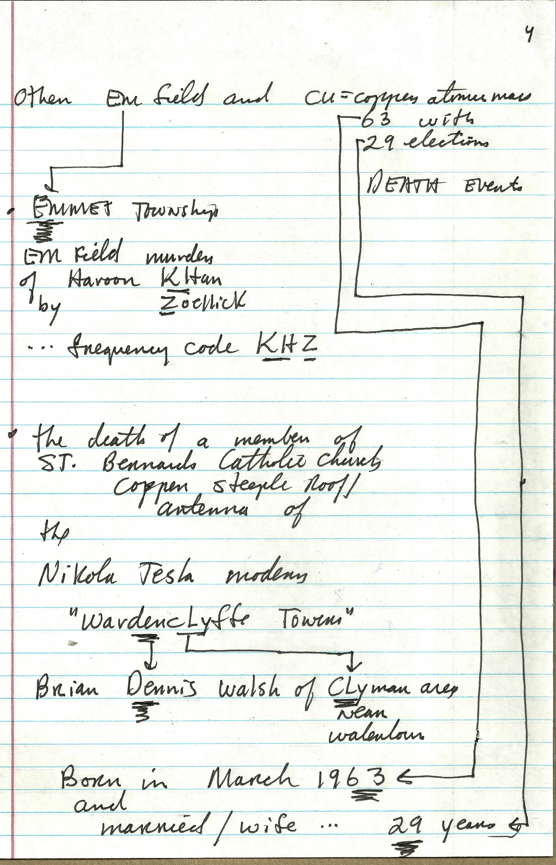 4
Other EM field and Cu = copper atomic mass
63 with
29 electrons
DEATH Events
EMMET Township
EM Field murder
of Haroon KHan
by Zoellick
... frequency code KHZ
the death of a member of
ST. Bernards Catholic Church
Copper steeple Roof/
antenna of
the
Nikola Tesla modern
"WardencLyffe Towers"
Brian Dennis Walsh of CLyman area
near
waterloo
Born in March 1963
and
married/wife ... 29 years